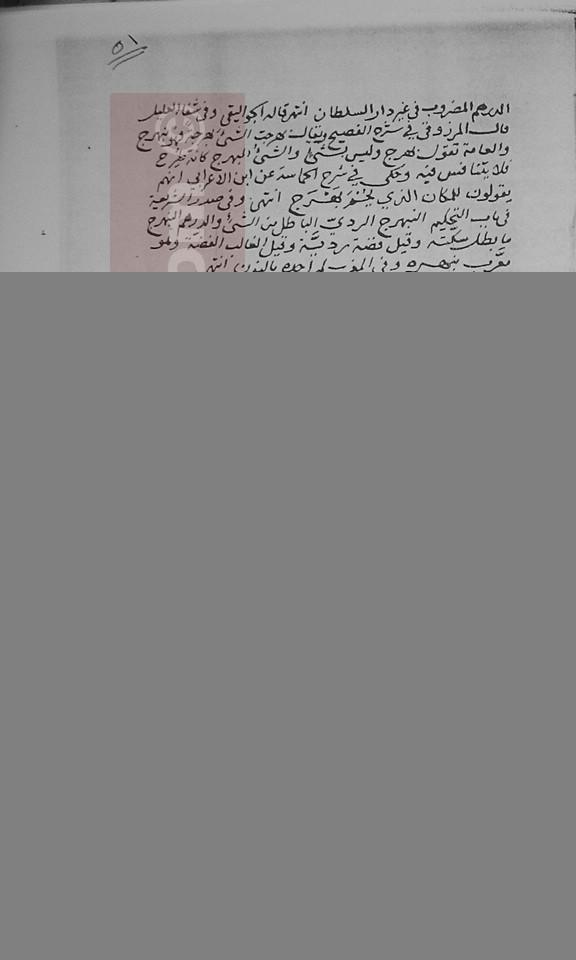 ٥١
الدرهم المضروب في غير دار السلطان انتهر قاله الجواليقي وفي شفا الغليل
قال المرزوقي في شرح الفصيح ويقال بهرجت الشئ بهرجة فهو بهرج
والعامة تقول بهرج وليس بشئ والشئ المبهرج كانه طرح
فلا يتنافس فيه وحكى في شرح الحماسة عن ابن الاعرابي انهم
يقولون للمكان الذي لم يحم بَهْرَج انتهى وفي صدر الشريعة
في باب التحكيم النبهرج الردي الباطل من الشئ والدرهم النبهرج
ما بطل سكته وقيل فضة ردية وقيل الغالب الفضة وهو
معرّب نبهره وفي المغرب لم اجده بالنون انتهر